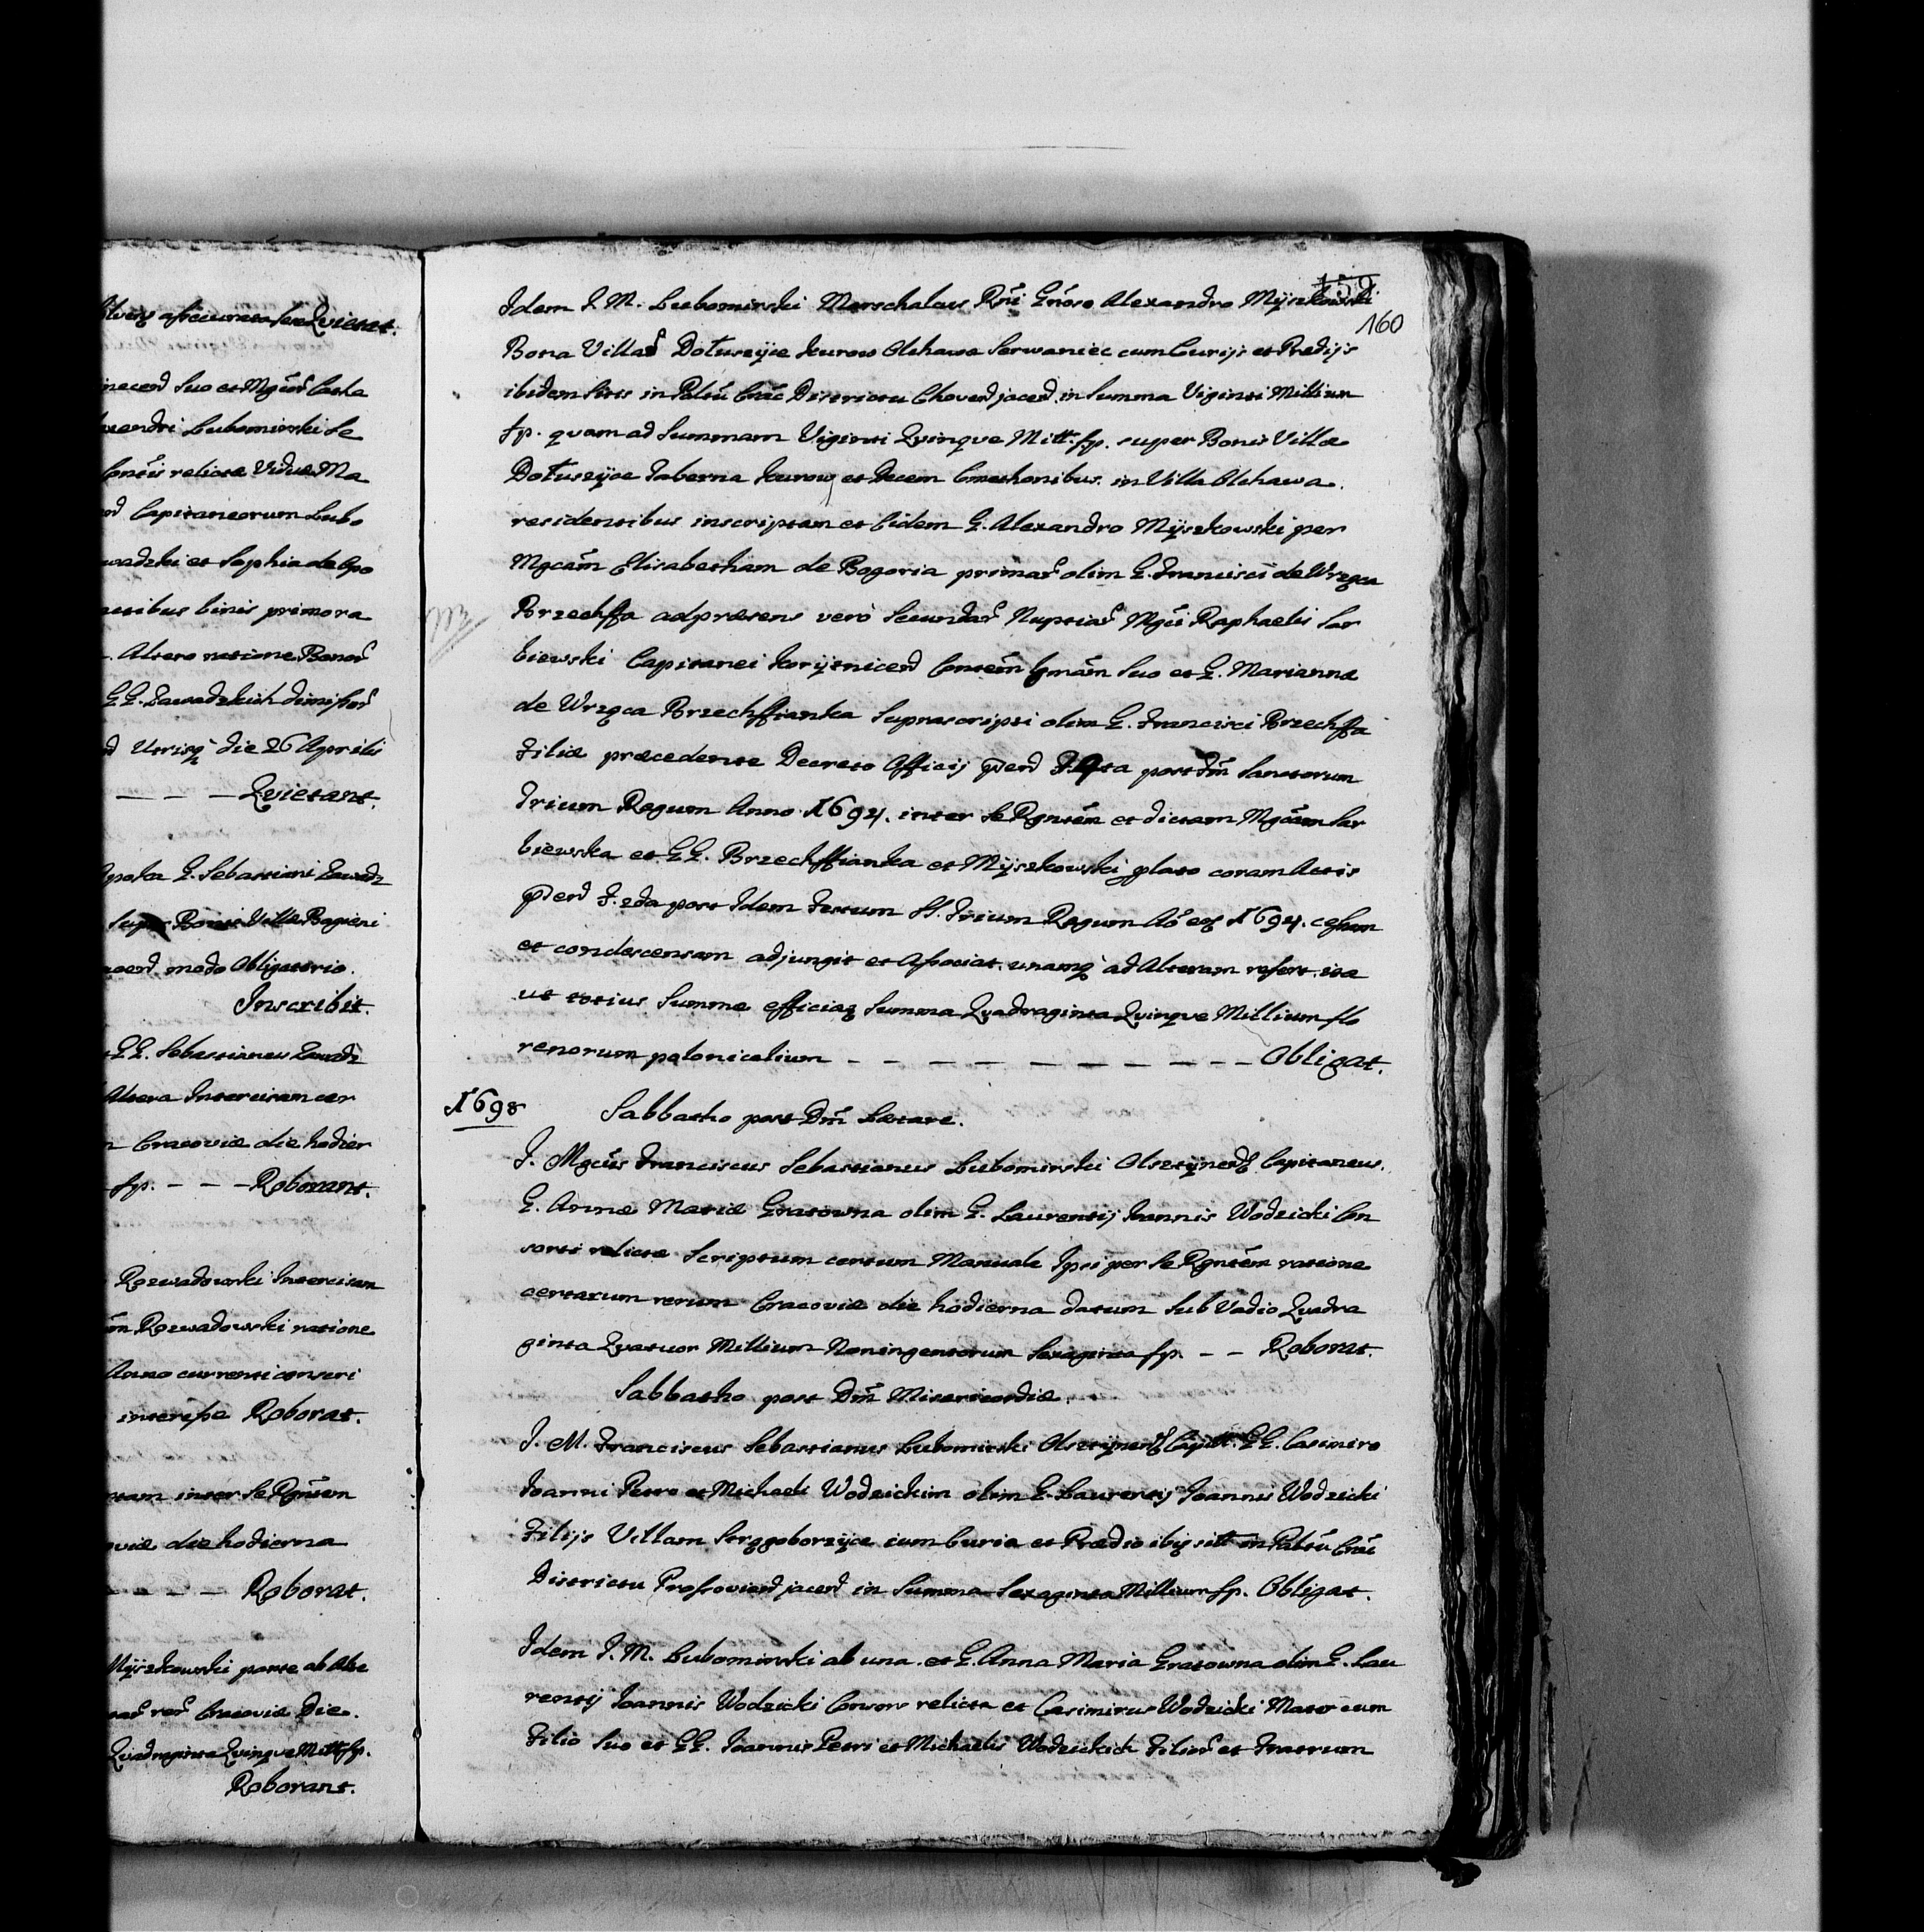 Olverz assecurata fere Quietat.
necend Suo et Mgcor Casta
xandri Lubomirski Se
Contis relictæ Viduæ Ma
nd Capitaneorum Lubo
wadzki et Sophia de Cpo
actibus binis primo ra
Altero ratione Bonor
GG. Zawadzkich dimissor
nd Utrisq die 26 Aprilis
— — — Quietant.
G. Sebastiani Zawadz
Super Bonis Villæ
modo Obligatorio.
Inscribit.
GG. Sebastianus Zawadz
Altera Intercisam cer
Cracoviæ die hodier
fp. — — — Roborant.
Rozwadowski Intercisam
Rozwadowski ratione
Anno currenti conscri
interesse Roborat.
inter Se Rgntem
die hodierna
— — — — Roborat.
Myszkowski parte ab Alte
Cracoviæ Die.
Quadraginta Quinque Mill. fp.
Roborant.
159
160
Idem I. M. Lubomirski Marschalcus Rni Gnoso Alexandro Myszkowski
Bona Villar Dołuszyce Kurow Olchawa Serwaniec cum Curijs et Prædijs
ibidem Sitis in Pal̃tu Crac̃ Districtu Chovend jacend in Summa Viginti Millium
fp. quam ad Summam Viginti Quinque Mill. fp. super Bonis Villæ
Dołuszyce Taberna Kurow et Decem Cmethonibus in Villa Olchawa.
residentibus inscriptam et Eidem G. Alexandro Myszkowski per
Mgcam̃ Elisabetham de Bogoria primar olim G. Francisci de Wrzqca
Brzechffa ad præsens verò Secundar Nuptiar Mgci Raphaelis Sar
biewski Capitanei Korytnicend Contem̃ Gnam̃ Suo et G. Marianna
de Wrzqca Brzechffianka Suprascripti olim G. Francisci Brzechffa
Filiæ præcedente Decreto Officij Pend F. 4ta post Dm̃ Sanctorum
Trium Regum Anno 1694. inter Se Rgntem̃ et dictam Mgcam Sar
biewska et GG. Brzechffianka et Myszkowski plato coram Actis
Pend F. 2da post Idem Festum SS. Trium Regum Aõ eoz 1694. cessam
et condescensam adjungit et Associat. unamq ad Alteram refert. ita
ut totius Summæ efficiaz Summa Quadraginta Quinque Millium flo
renorum polonicalium — — — — — — — — — — Obligat.
1698 Sabbatho post Dm̃ Lætare.
I. Mgcus Franciscus Sebastianus Lubomirski Olsztynend Capitaneus.
G. Annæ Mariæ Gratowna olim G. Laurentij Joannis Wodzicki Con
sorti relictæ Scriptum certum Manuale Ipsi per Se Rgntem̃ ratione
certarum rerum Cracoviæ die hodierna datum Sub Vadio Quadra
ginta Quatuor Millium Noningentorum Sexaginta fp. — — Roborat.
Sabbatho post Dm̃ Misericordiæ.
I. M. Franciscus Sebastianus Lubomirski Olsztynend Capit. GG. Casimiro
Joanni Petro et Michaeli Wodzickim olim G. Laurentij Joannis Wodzicki
Filijs Villam Strzgoborzyce cum Curia et Prædio ibiz sitt in Pal̃tu Crac̃
Districtu Prossoviend jacend in Summa Sexaginta Millium fp. Obligat.
Idem I. M. Lubomirski ab una. et G. Anna Maria Gratowna olim G. Lau
rentij Joannis Wodzicki Consors relicta et Casimirus Wodzicki Mater cum
Filio Suo et GG. Joannis Petri et Michaelis Wodzickich Filior et Fratrum